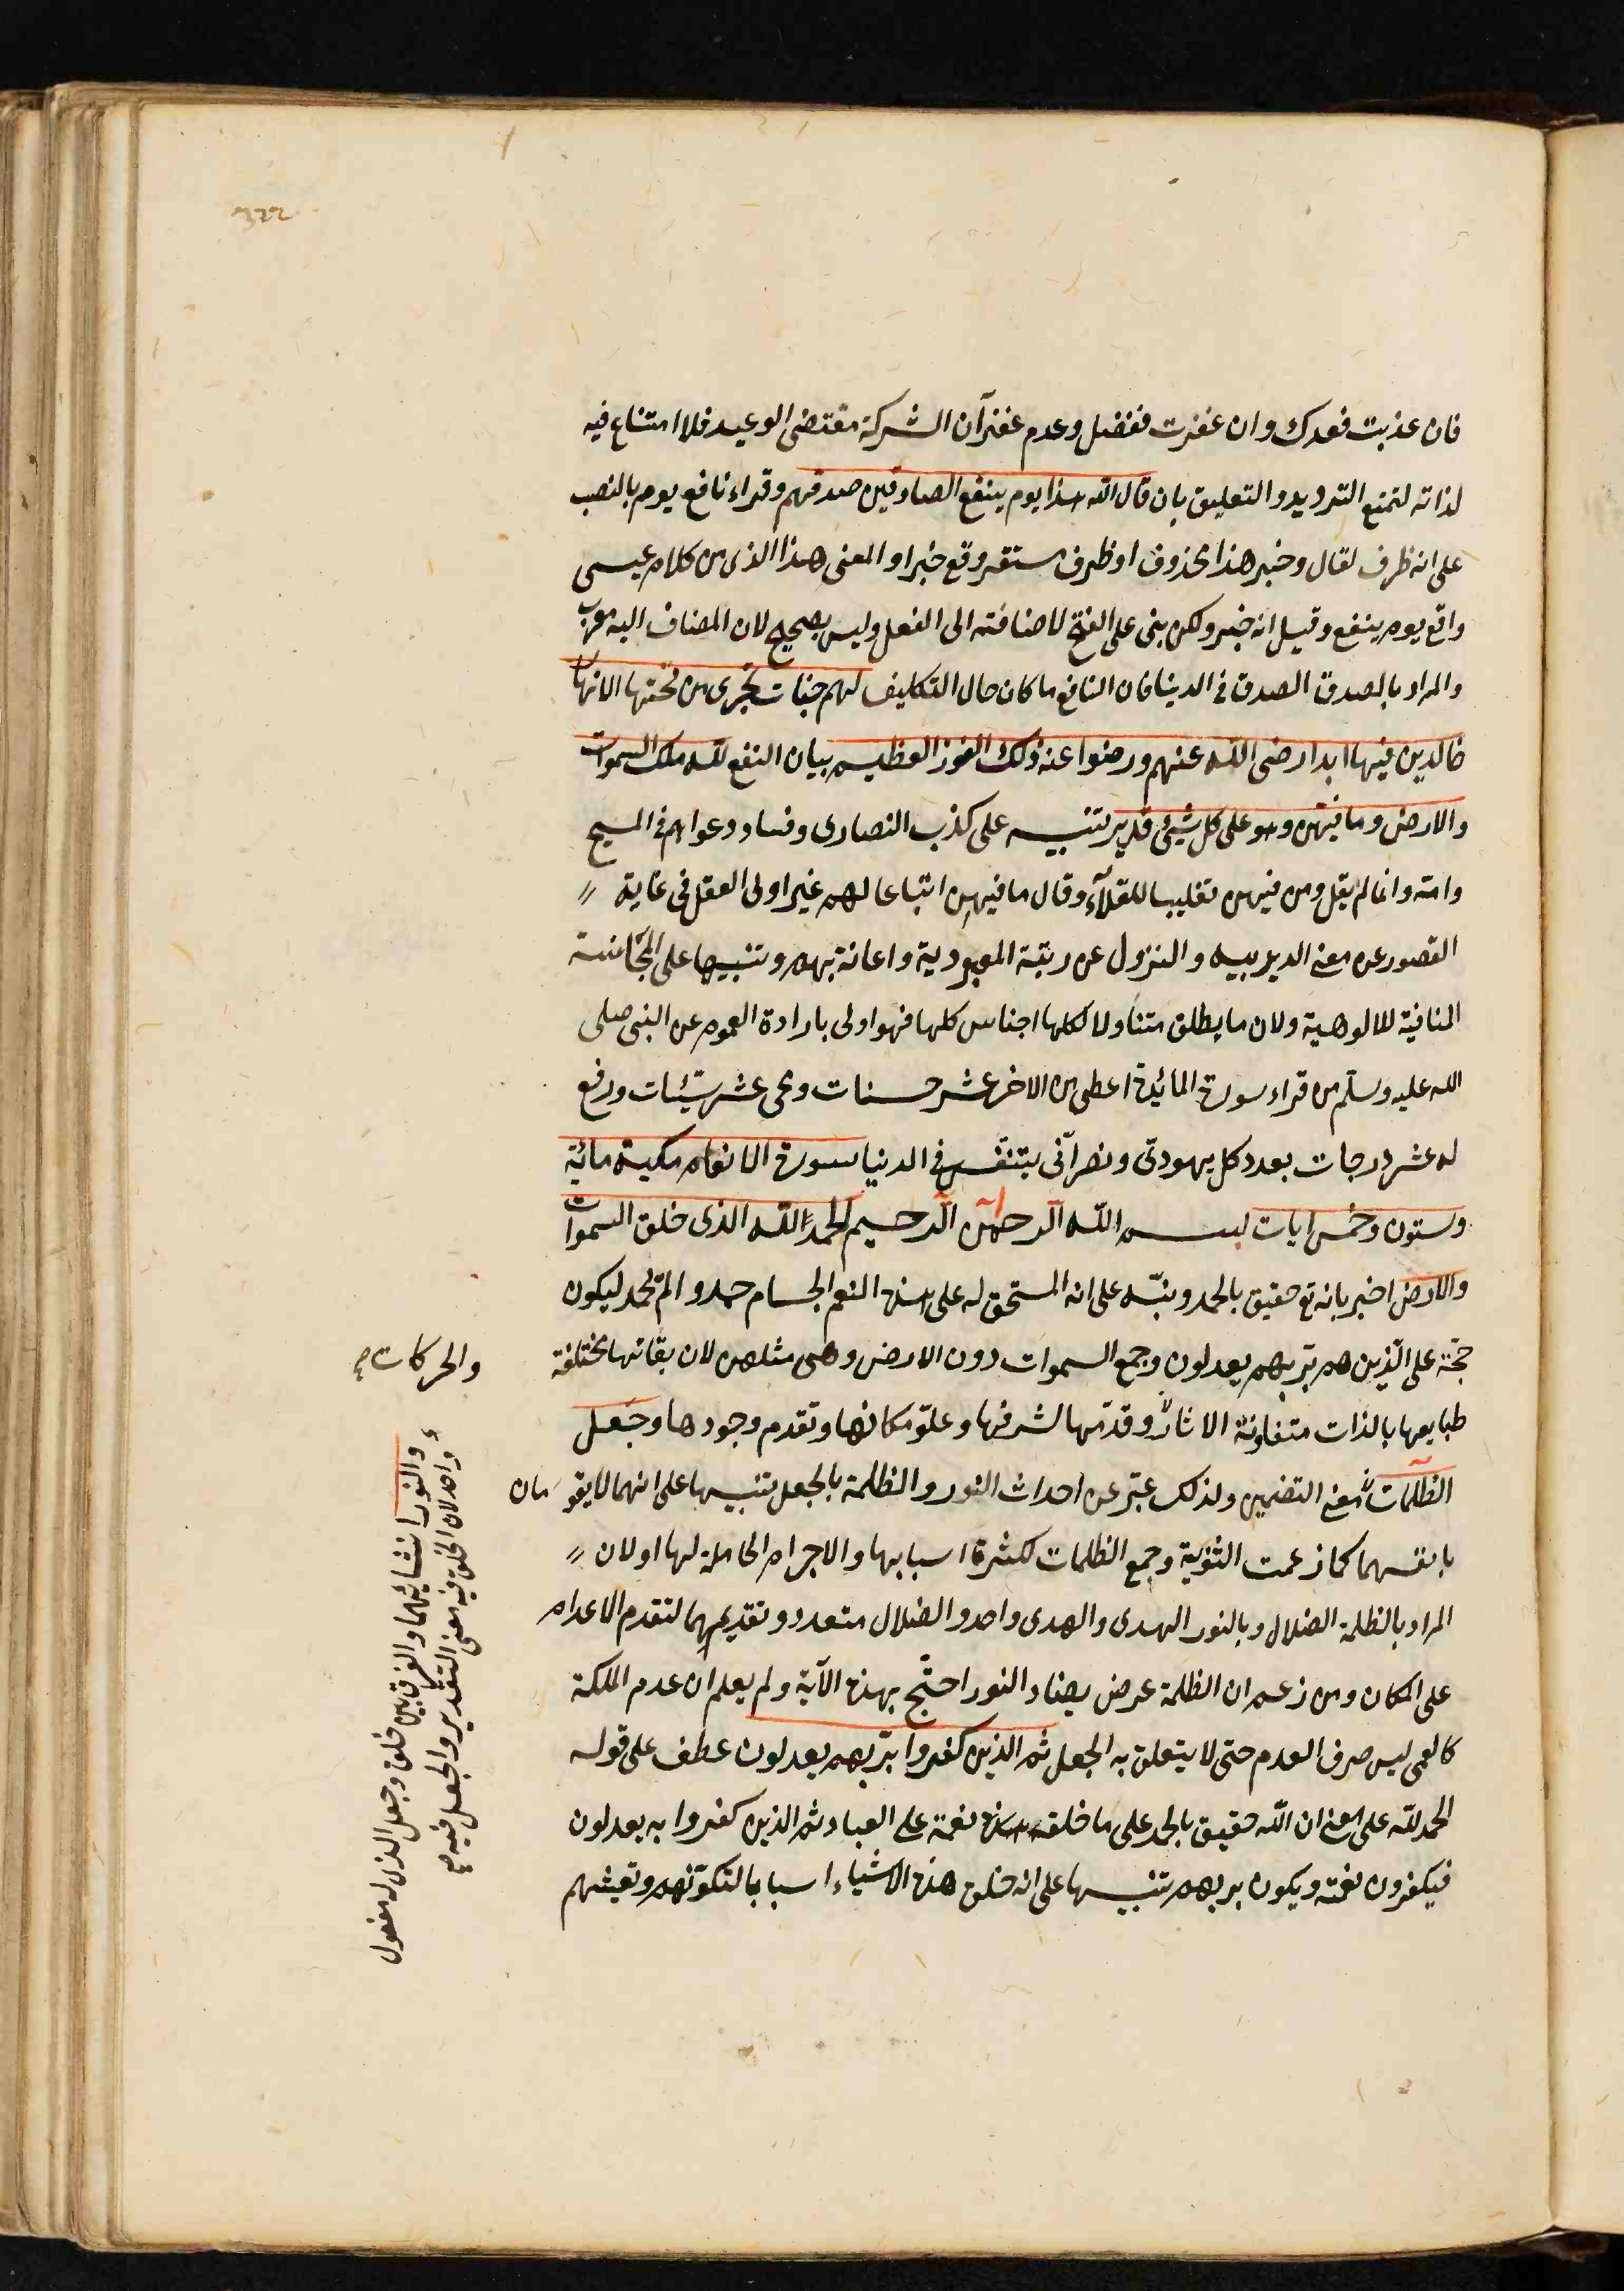 322
فان عذبت فعدك وان غفرت ففضل وعدم غفرآن الشركة مقتضى الوعيد فلا امتناع فيه
لذاته لتمنع الترديد والتعليق بان قال الله هذا يوم ينفع الصادقين صدقهم وقراء نافع يوم بالنصب
على انه ظرف لقال وخبر هذا محذوف او ظرف مستقر وقع خبرا والمعنى هذا الذى من كلام عيسى
واقع يوم ينفع وقيل انه خبر ولكن بنى على الفتح لاضافته الى الفعل وليس بصحيح لان المضاف اليه معرب
والمراد بالصدق الصدق فى الدنيا فان النافع ما كان حال التكليف لهم جنات تجرى من تحتها الانهار
خالدين فيها ابدا رضى الله عنهم ورضوا عنه ذلك الفوز العظيم بيان النفع لله ملك السموات
والارض وما فيهن وهو على كل شيئ قدير تنبيه على كذب النصارى وفساد دعواهم فى المسيح
وامه وانما لم يقل ومن فيهن تغليبا للعقلآء وقال ما فيهن اتباعا لهم غير اولى العقل فى غاية
القصور عن معنى الربوبيه والنزول عن رتبة المعبودية واهانة بهم وتنبيها على المجانسة
المنافية للالوهية ولان ما يطلق متناولا لكلها اجناس كلها فهو اولى بارادة العموم عن النبى صلى
الله عليه وسلم من قراء سورة المائدة اعطى من الاخر عشر حسنات ومحى عشر سيئات ورفع
له عشر درجات بعدد كل يهودى ونصرآنى يتنفس فى الدنيا سورة الانعام مكية مائة
وستون وخمس ايات بسم الله الرحمن الرحيم الحمد لله الذى خلق السموات
والارض اخبر بانه تع حقيق بالحمد ونبّه على انه المستحق له على هذه النعم الجسام حمد والم يحمد ليكون
حجة على الذين هم بربهم يعدلون وجمع السموات دون الارض وهى مثلهن لان بقاتها مختلفة
طبايعها بالذات متفاوتة الاثار وقدمها لشرفها وعلو مكانها وتقدم وجودها وجعل
الظلمات معنى التضمين ولذلك عبّر عن احداث النور والظلمة بالجعل تنبيها على انهما لا يقومان
بانفسهما كما زعمت الثنوية وجمع الظلمات لكثرة اسبابها والاجرام الحاملة لها او لان
المراد بالظلمة الضلال وبالنور الهدى والهدى واحد والضلال متعدد وتقديمهما لتقدم الاعدام
على المكان ومن زعم ان الظلمة عرض يضاد النور احتج بهذه الآية ولم يعلم ان عدم الملكة
كالعمى ليس صرف العدم حتى لا يتعلق به الجعل ثم الذين كفروا بربهم يعدلون عطف على قوله
الحمد لله على معنى ان الله حقيق بالحمد على ما خلقه نعمة على العباد ثم الذين كفروا به يعدلون
فيكفرون نعمته ويكون بربهم تنبيها على انه خلق هذه الاشياء اسبابا لتكونهم وتعيشهم
والحركات
والنور انشائهما والفرق بين خلق وجعل الذى له مفعول
واحد لان الخلق فيه معنى التقدير والجعل فيه